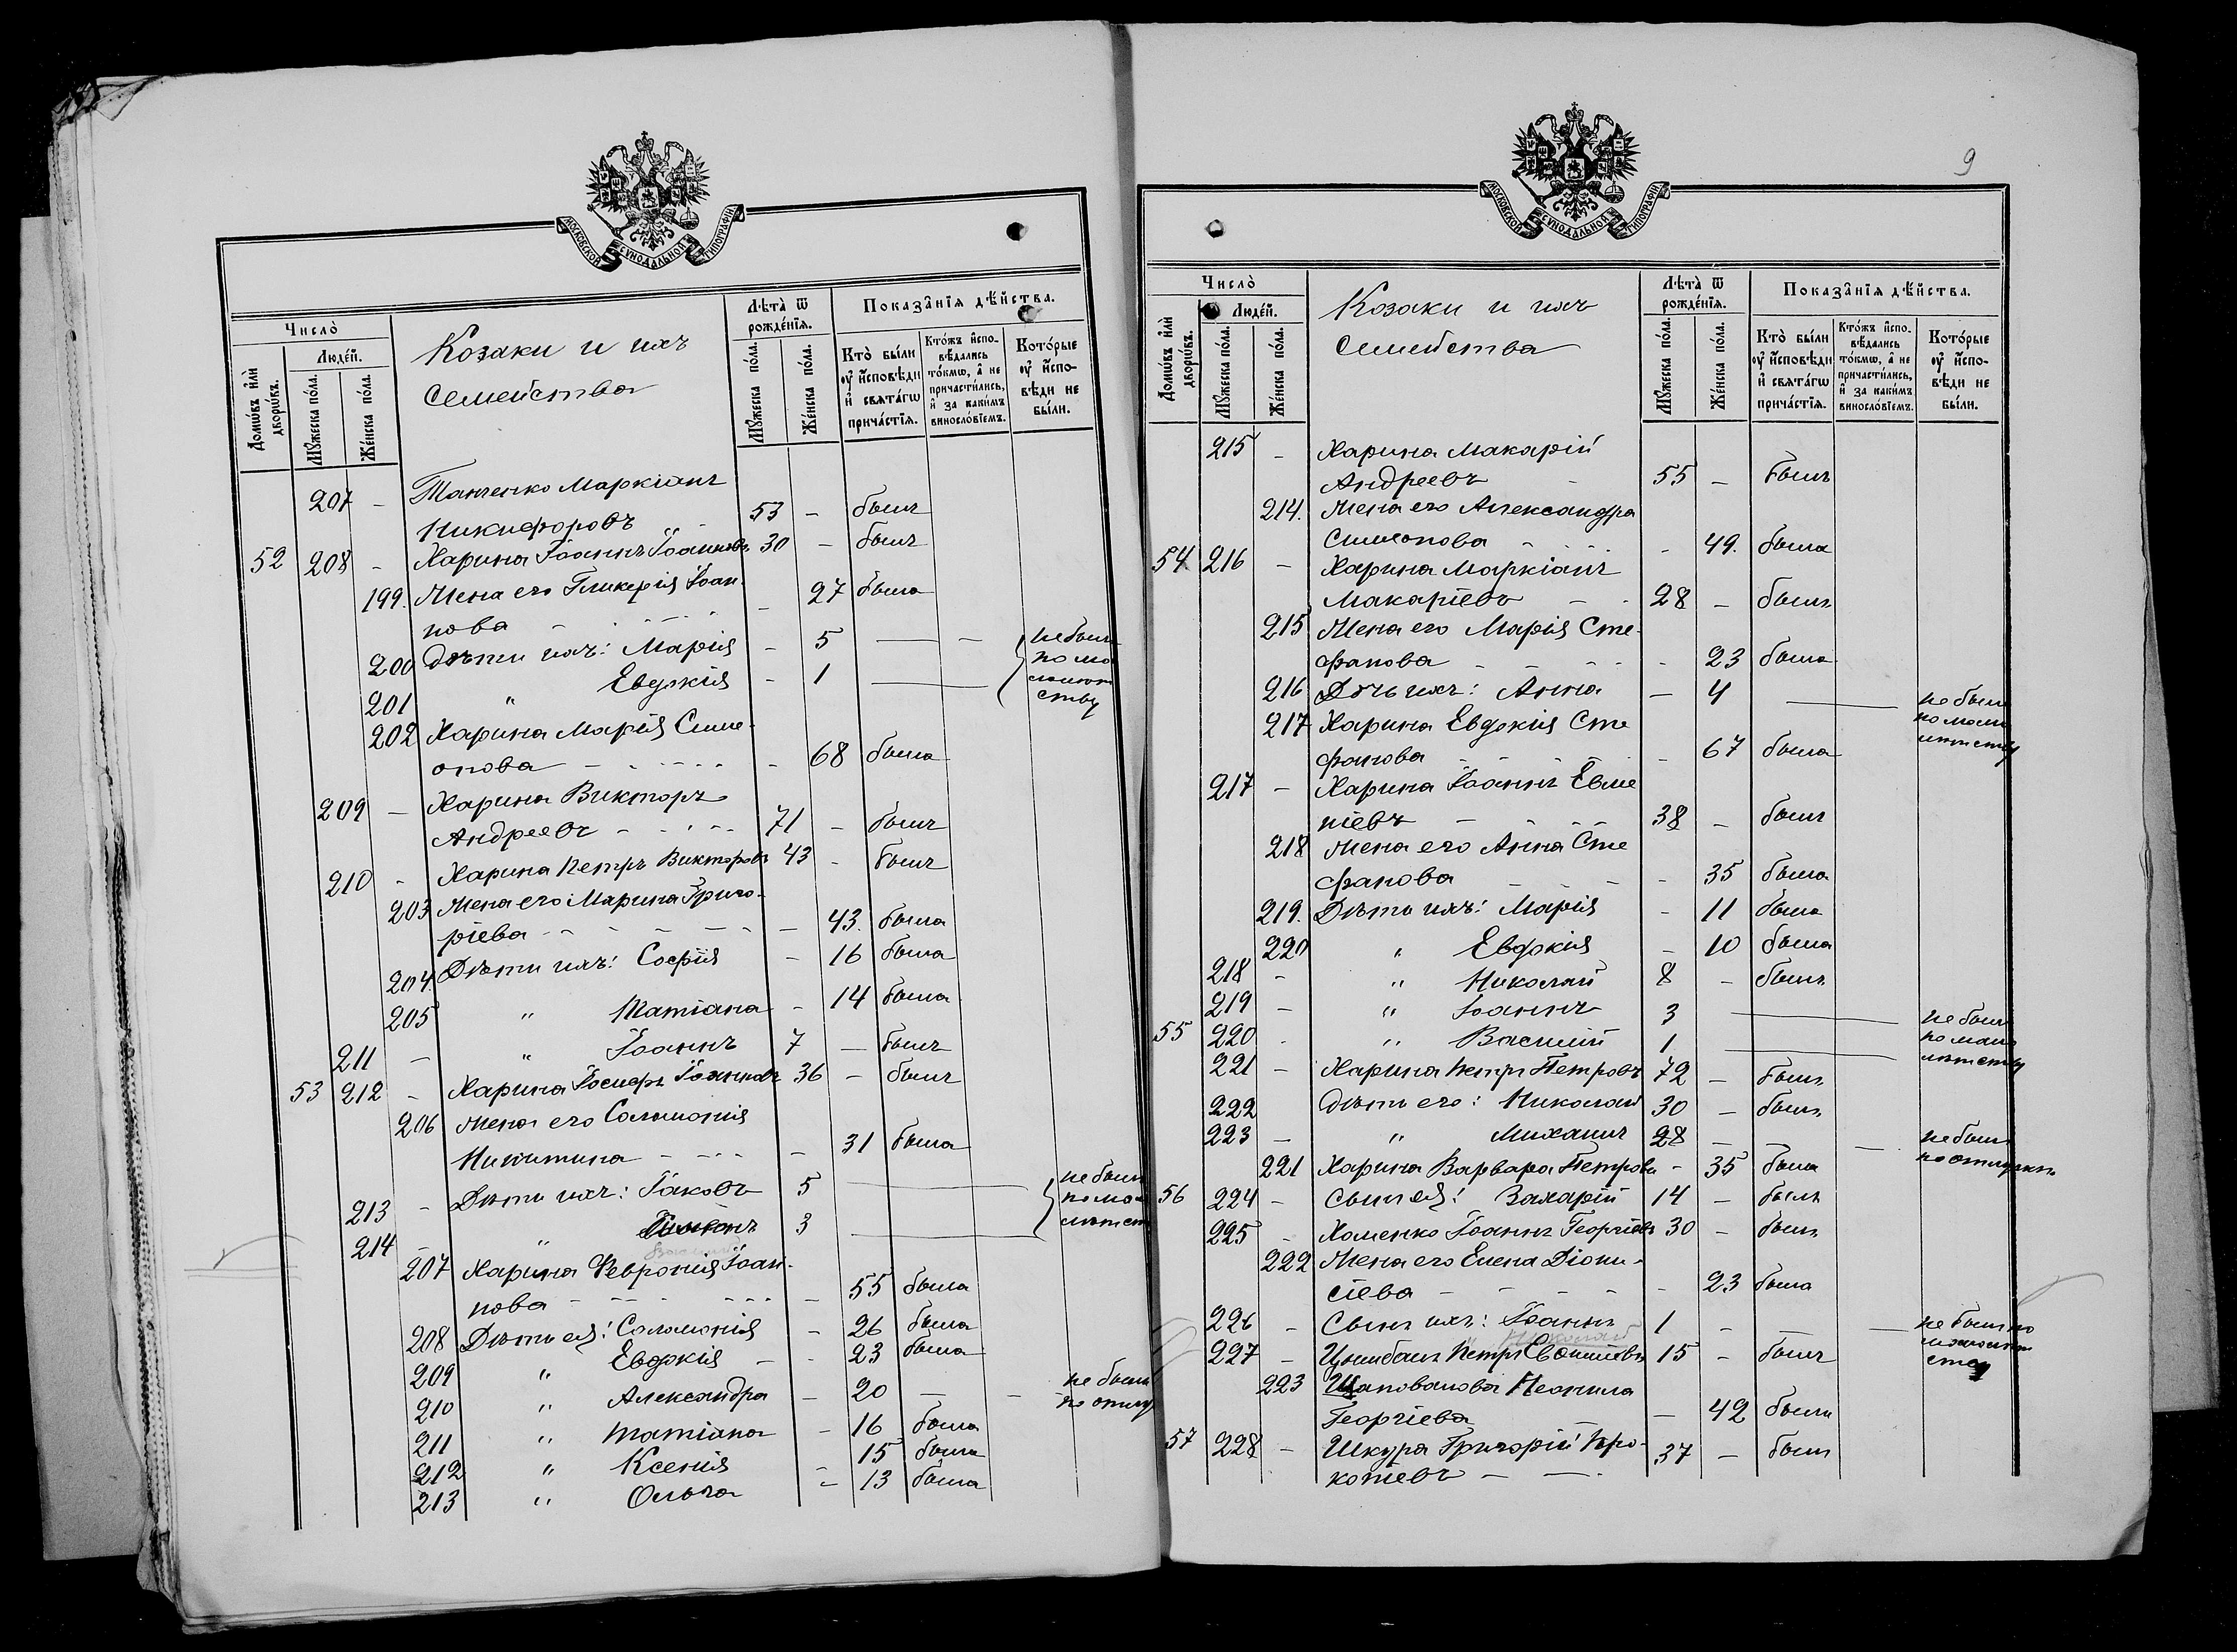 МОСКОВСКОЙ СѴНОДАЛЬНОЙ ТИПОГРАФІИ
Число̀
Домѡ́въ и҆лѝ дворѡ́въ.
Люде́й.
Мꙋ́жеска по́ла.
Же́нска по́ла.
Козаки и ихъ
семейства
Лѣта̀ ѿ рожде́нїѧ.
Мꙋ́жеска по́ла.
Же́нска по́ла.
Показа̑нїѧ дѣ́йства.
Кто̀ бы́ли оу҆ и҆сповѣди и҆ свѧта́гѡ прича́стїѧ.
Кто́жъ и҆сповѣ́дались то́кмѡ, а҆ не причасти́лись, и҆ за каки́мъ винослові́емъ.
Кото́рые оу҆ и҆сповѣди не бы́ли.
207 - Танченко Маркіанъ
Никифоровъ 53 - былъ
52 208 - Харина Іоаннъ Іоанновъ 30 - былъ
199. Жена его Гликерія Іоан-
нова - 27 была
200 дѣти ихъ: Марія - 5 не были
по мало
201 " Евдокія - 1 лѣт
ству
202 Харина Марія Симе-
онова - 68 была
209 - Харина Викторъ
Андреевъ 71 - былъ
210 - Харина Петръ Викторовъ 43 - былъ
203 Жена его Марина Григо-
ріева - 43. была
204. Дѣти ихъ: Софія - 16 была
205 " Татіана - 14 была
211 - " Іоаннъ 7 - былъ
53 212 - Харина Іосифъ Іоанновъ 36 - былъ
206 Жена его Соломонія
Никитина - 31 была
213 - Дѣти ихъ: Іаковъ 5 не были
по мало
214 - " 3 лѣтст
207 Харина Февронія Іоан-
нова - 55 была
208 Дѣти ея: Соломонія - 26 была
209 " Евдокія - 23 была
210 " Александра - 20 - - не была
по отлу
211 " Татіана - 16 была
212 " Ксенія - 15 была
213 " Ольга - 13 была
9
МОСКОВСКОЙ СѴНОДАЛЬНОЙ ТИПОГРАФІИ
Число̀
Домѡ́въ и҆лѝ дворѡ́въ.
Люде́й.
Мꙋ́жеска по́ла.
Же́нска по́ла.
Козаки и ихъ
семейства
Лѣта̀ ѿ рожде́нїѧ.
Мꙋ́жеска по́ла.
Же́нска по́ла.
Показа̑нїѧ дѣ́йства.
Кто̀ бы́ли оу҆ и҆сповѣди и҆ свѧта́гѡ прича́стїѧ.
Кто́жъ и҆сповѣ́дались то́кмѡ, а҆ не причасти́лись, и҆ за каки́мъ винослові́емъ.
Кото́рые оу҆ и҆сповѣди не бы́ли.
215 - Харина Макарій
Андреевъ 55 - былъ
214. Жена его Александра
Симеонова - 49. была
54 216 - Харина Маркіанъ
Макаріевъ 28 - былъ
215 Жена его Марія Сте-
фанова - 23 была
216 Дочь ихъ: Анна - 4 не была
по мало
лѣтству
217 Харина Евдокія Сте
фанова - 67 была
217 - Харина Іоаннъ Евме
ніевъ 38 - былъ
218 Жена его Анна Сте
фанова - 35 была
219. Дѣти ихъ: Марія - 11 была
220 " Евдокія - 10 была
218 - " Николай 8 - былъ
219 - " Іоаннъ 3 не были
по мало
лѣтству
55 220 - " Василій 1
221 - Харина Петръ Петровъ 72 - былъ
222 дѣти его: Николай 30 - былъ
223 - " Михаилъ 28 - - не былъ
по отлучкѣ
221 Харина Варвара Петрова - 35 была
56 224 - Сынъ ея: Захарій 14 - былъ
225 - Хоменко Іоаннъ Георгіевъ 30 - былъ
222 Жена его Елена Діони-
сіева - 23 была
226 - Сынъ ихъ: Іоаннъ 1 - - не былъ по
малолѣт
ству
Николай
227 - Цымбалъ Петръ 15 - былъ
223 Шаповалова Неонила
Георгіева - 42 была
57 228 - Шкура Григорій Про-
копіевъ 37 - былъ